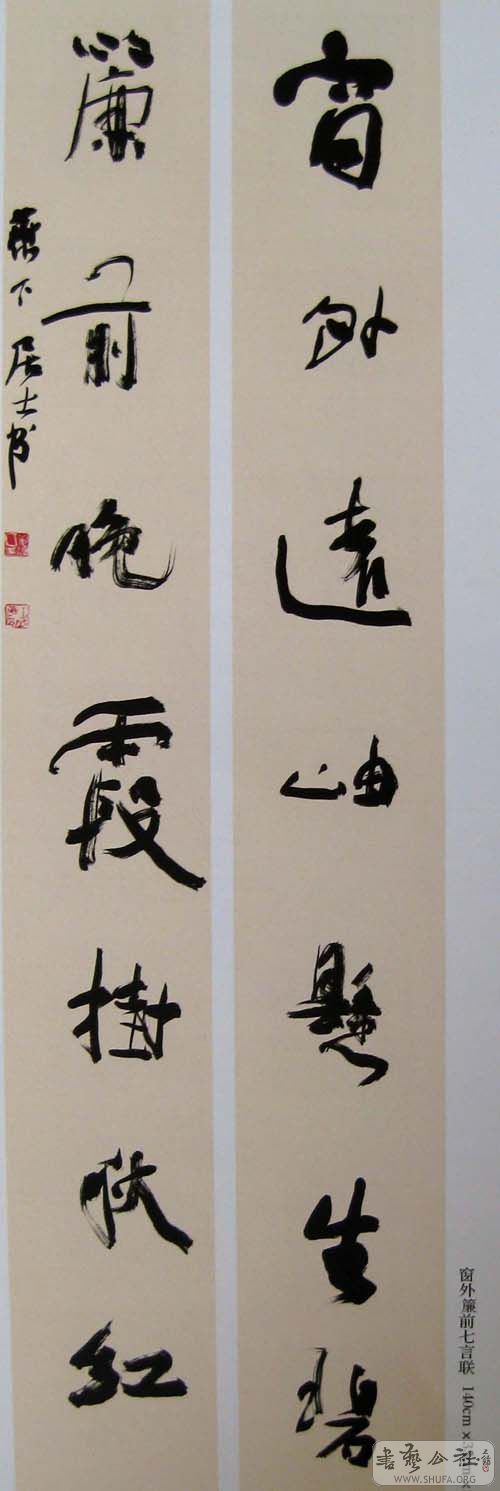 窗外遠岫懸生碧
簾前晚霞掛紅
下居士书
窗外簾前七言联 140cm
書藝公社
WWW.SHUFA.ORG